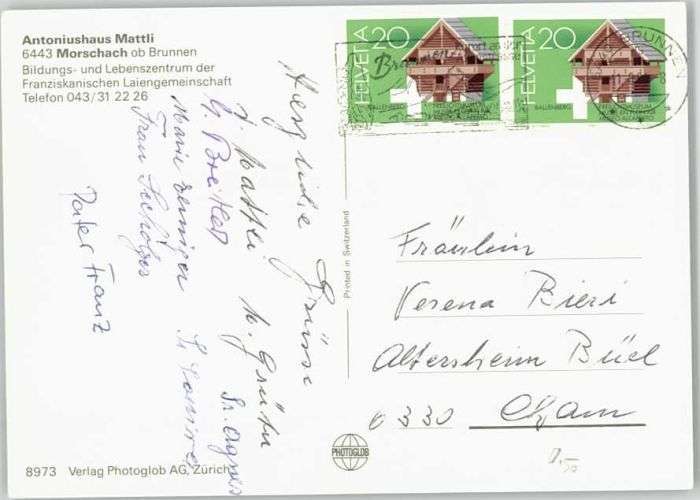 Antoniushaus Mattli
6443 Morschach ob Brunnen
Bildungs- und Lebenszentrum der
Franziskanischen Laiengemeinschaft
Telefon 043/31 22 26
HELVETIA 20
BALLENBERG
HELVETIA 20
BALLENBERG
Brunnen
BRUNNEN
Herzliche Grüsse
J. Mattli M. Grüter
G. Breitler Sr. Agnes
Marie
Frau
Pater Franz
Printed in Switzerland
Fräulein
Verena Bieri
Altersheim Büel
6330 Cham
PHOTOGLOB
8973 Verlag Photoglob AG, Zürich